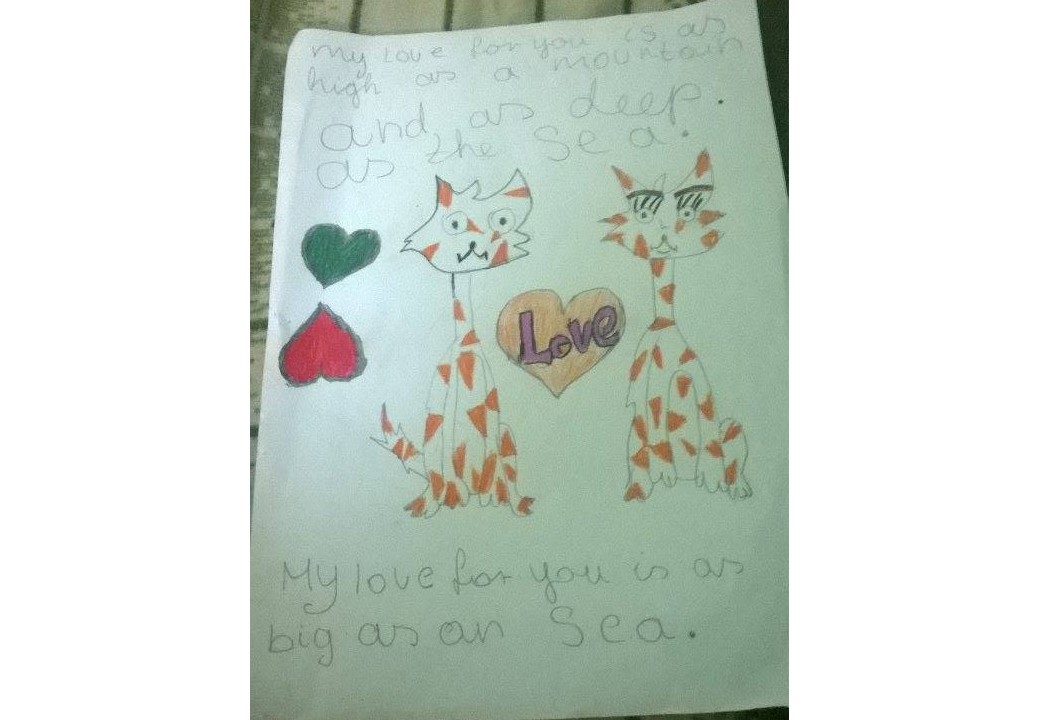 My love for you is as
high as a mountain
and as deep.
as the Sea.
Love
My love for you is as
big as an Sea.